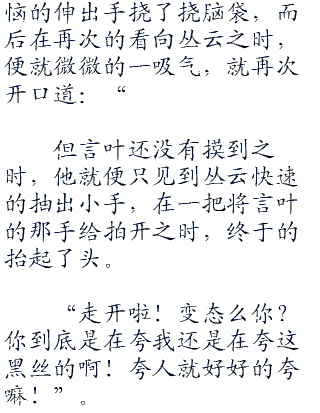 恼的伸出手挠了挠脑袋，而
后在再次的看向丛云之时，
便就微微的一吸气，就再次
开口道：“
但言叶还没有摸到之
时，他就便只见到丛云快速
的抽出小手，在一把将言叶
的那手给拍开之时，终于的
抬起了头。
“走开啦！变态么你？
你到底是在夸我还是在夸这
黑丝的啊！夸人就好好的夸
嘛！”。